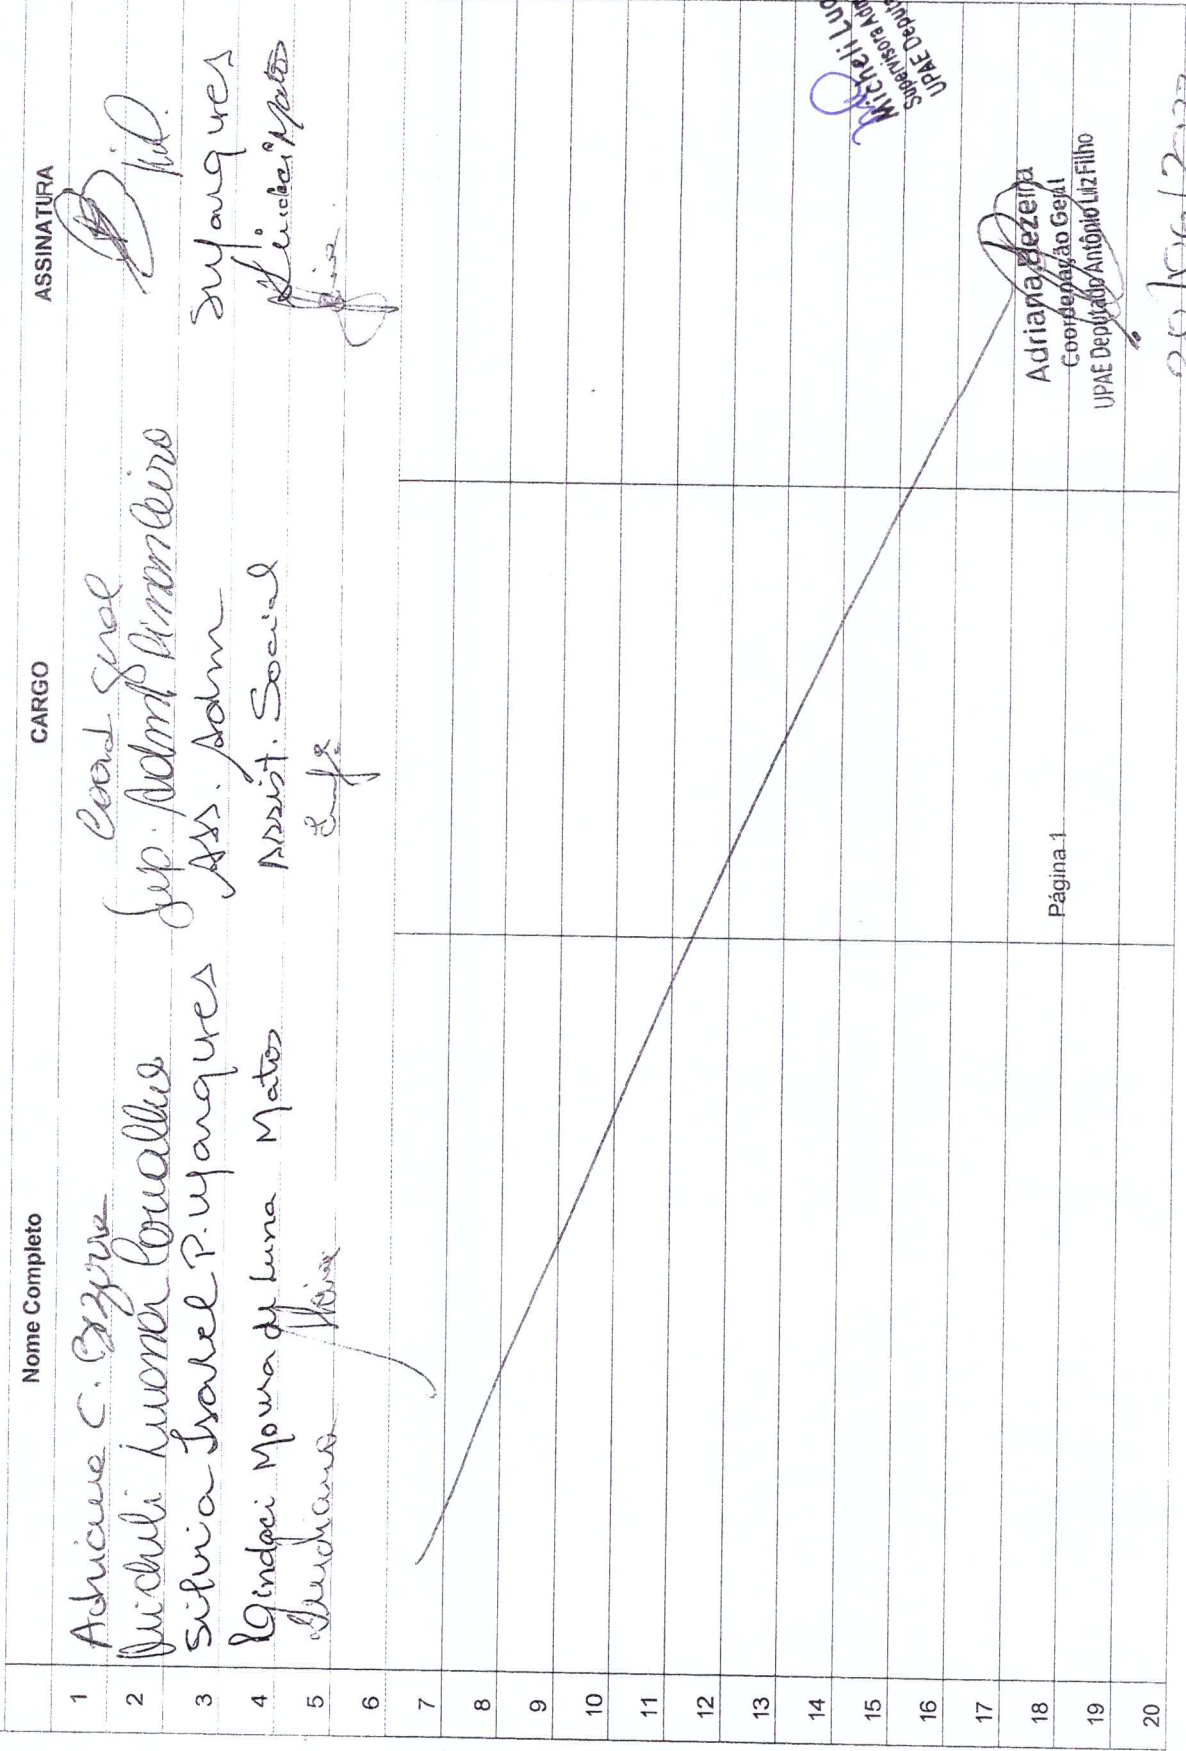 Nome Completo CARGO ASSINATURA
1 Adriana C. Bezerra Coord Geral
2 Micheli Luana Carvalho Sup. Adm Financeiro
3 Silvia Isabel P. Marques Ass. Adm SMarques
4 Lindaci Moura de Luna Matos Assist. Social Lindaci Matos
5
6
7
8
9
10
11
12
13
14
15
16
17
18
19
20
Micheli Lua
Supervisora Adm
UPAE Deputa
Adriana Bezerra
Coordenação Geral
UPAE Deputado Antônio Luiz Filho
Página 1